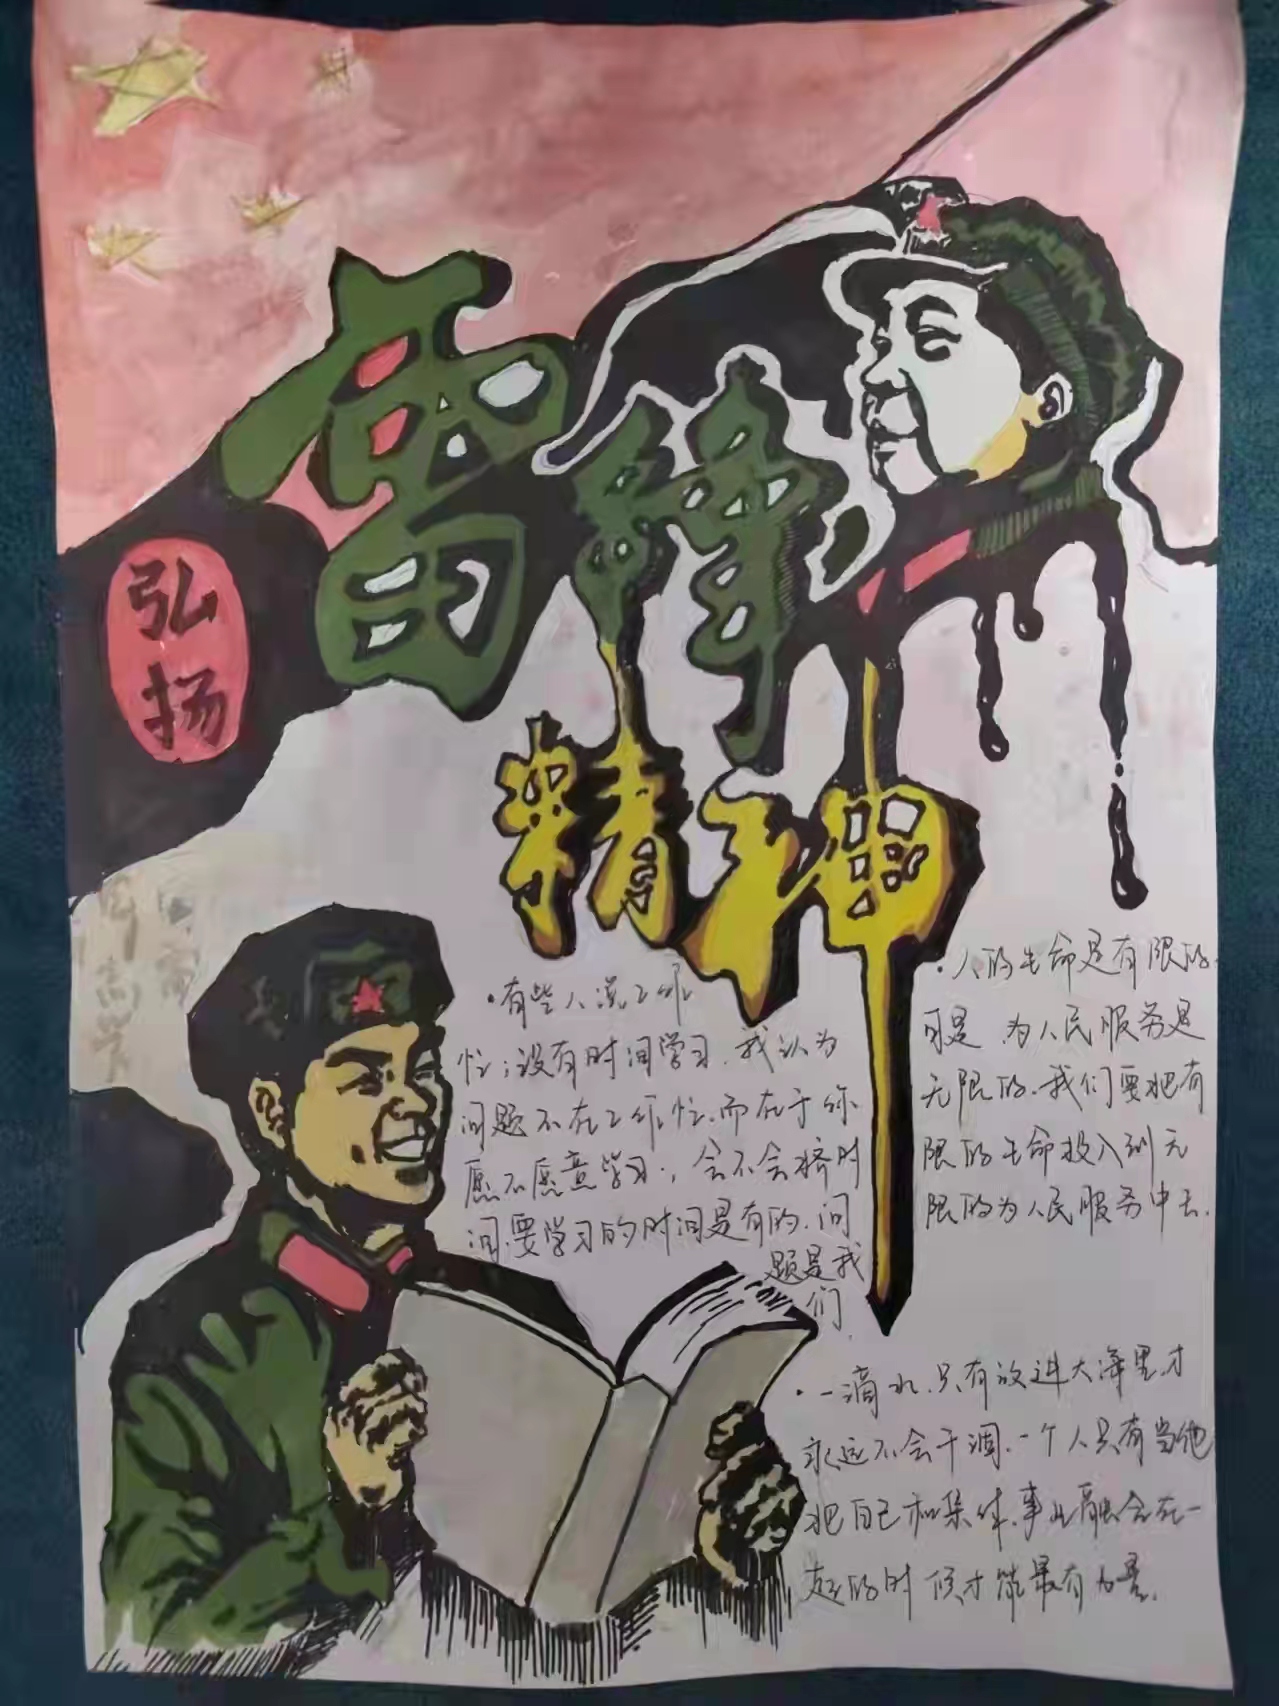 弘
扬
雷锋
精神
·有些人说工作
忙；没有时间学习．我认为
问题不在工作忙．而在于你
愿不愿意学习；会不会挤时
间．要学习的时间是有的．问
题是我
们．
·人的生命是有限的．
可是．为人民服务是
无限的．我们要把有
限的生命投入到无
限的为人民服务中去．
·一滴水．只有放进大海里．才
永远不会干涸．一个人只有当他
把自己和集体．事业融合在一
起的时候才能最有力量．